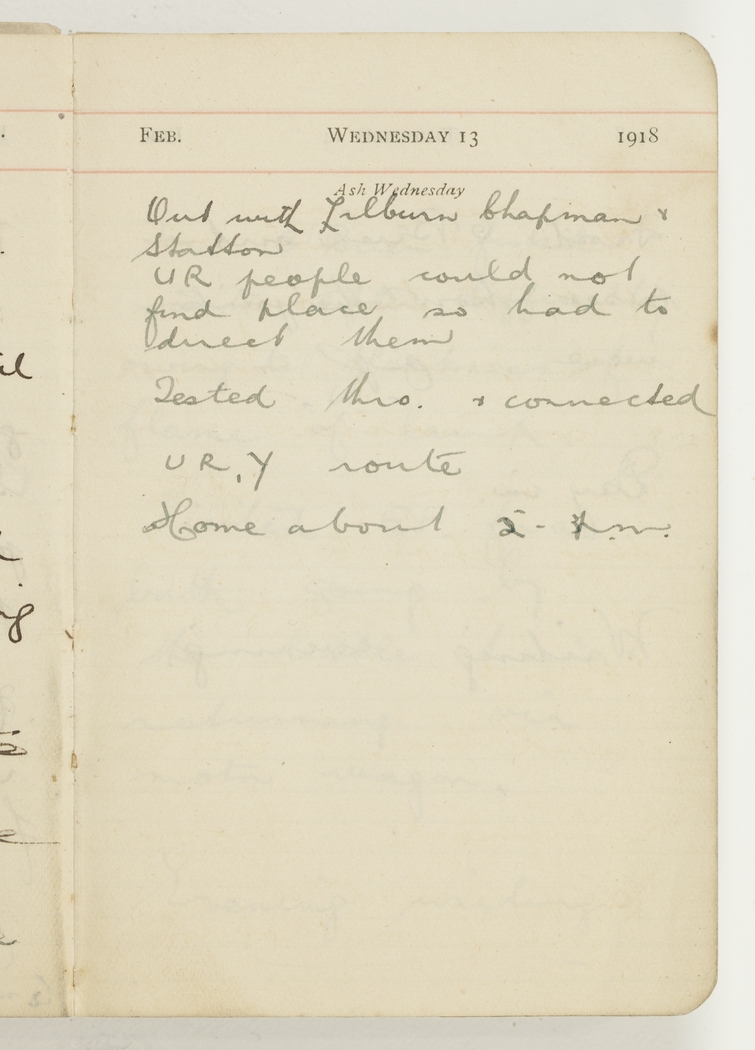 FEB. WEDNESDAY 13 1918
Ash Wednesday
Out with Filburn Chapman &
Statton
UR people could not
find place so had to
direct them
Tested thro. & connected
UR, Y route
Home about 2 -